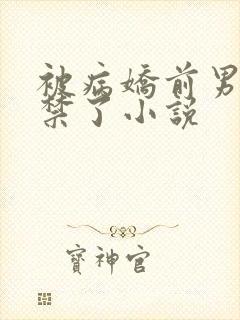 被病嬌前男
禁了小説
寶神官